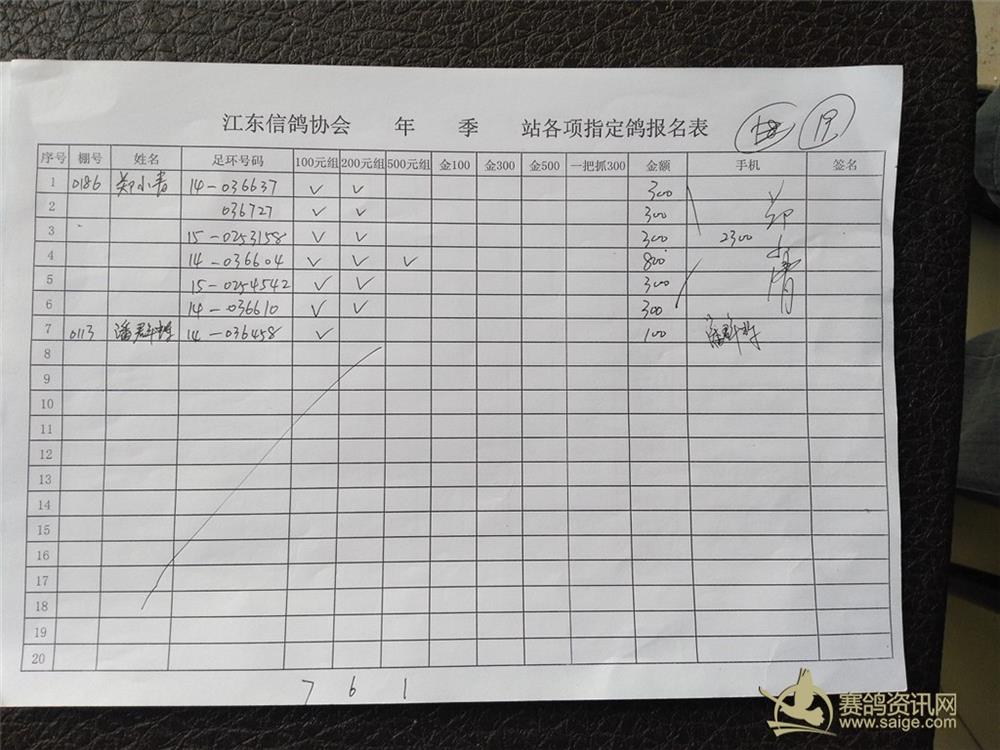 江东信鸽协会 年 季 站各项指定鸽报名表
序号 棚号 姓名 足环号码 100元组 200元组 500元组 金100 金300 金500 一把抓300 金额 手机 签名
1 0186 郑小青 14-036637 √ √ 300
2 036727 √ √ 300
3 15-0253158 √ √ 300 2300
4 14-036604 √ √ √ 800
5 15-0254542 √ √ 300
6 14-036610 √ √ 300
7 0113 潘 14-036458 √ 100
8
9
10
11
12
13
14
15
16
17
18
19
20
7 6 1
赛鸽资讯网
www.saige.com